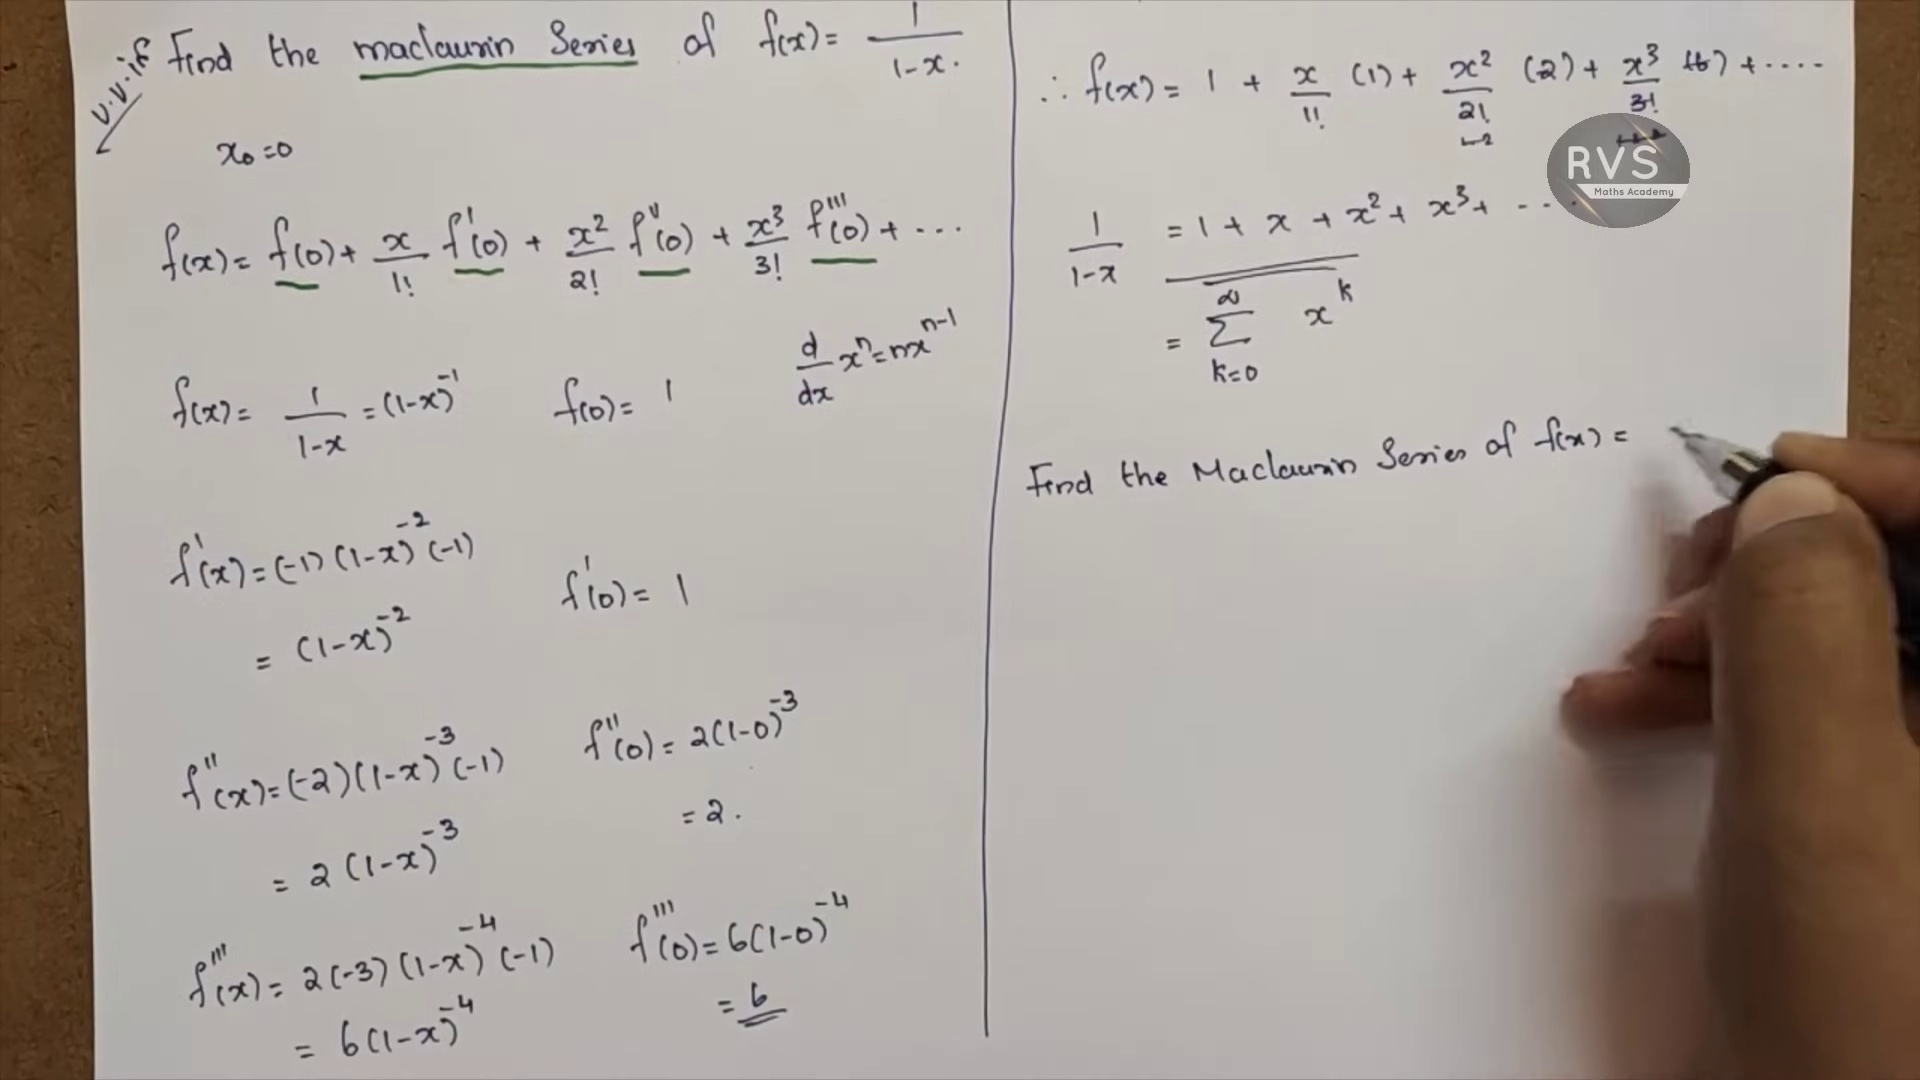 v.v.if Find the maclaurin Series of f(x) = 1/(1-x).
x₀ = 0
f(x) = f(0) + x/1! f'(0) + x²/2! f''(0) + x³/3! f'''(0) + ...
d/dx xⁿ = nxⁿ⁻¹
f(x) = 1/(1-x) = (1-x)⁻¹ f(0) = 1
f'(x) = (-1)(1-x)⁻²(-1) f'(0) = 1
= (1-x)⁻²
f''(x) = (-2)(1-x)⁻³(-1) f''(0) = 2(1-0)⁻³
= 2(1-x)⁻³ = 2.
f'''(x) = 2(-3)(1-x)⁻⁴(-1) f'''(0) = 6(1-0)⁻⁴
= 6(1-x)⁻⁴ = 6
∴ f(x) = 1 + x/1! (1) + x²/2! (2) + x³/3! (6) + ....
RVS
Maths Academy
1/(1-x) = 1 + x + x² + x³ + ....
= ∑_{k=0}^{∞} xᵏ
Find the Maclaurin Series of f(x) =